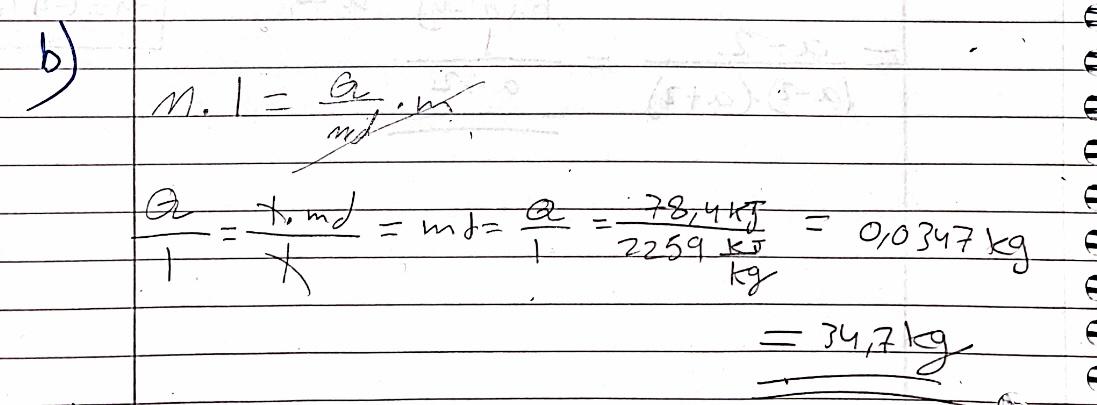 b)
m. l = Q/md . m
Q/l = l.md/l = md = Q/l = 78,4 kJ/2259 kJ/kg = 0,0347 kg
= 34,7 kg